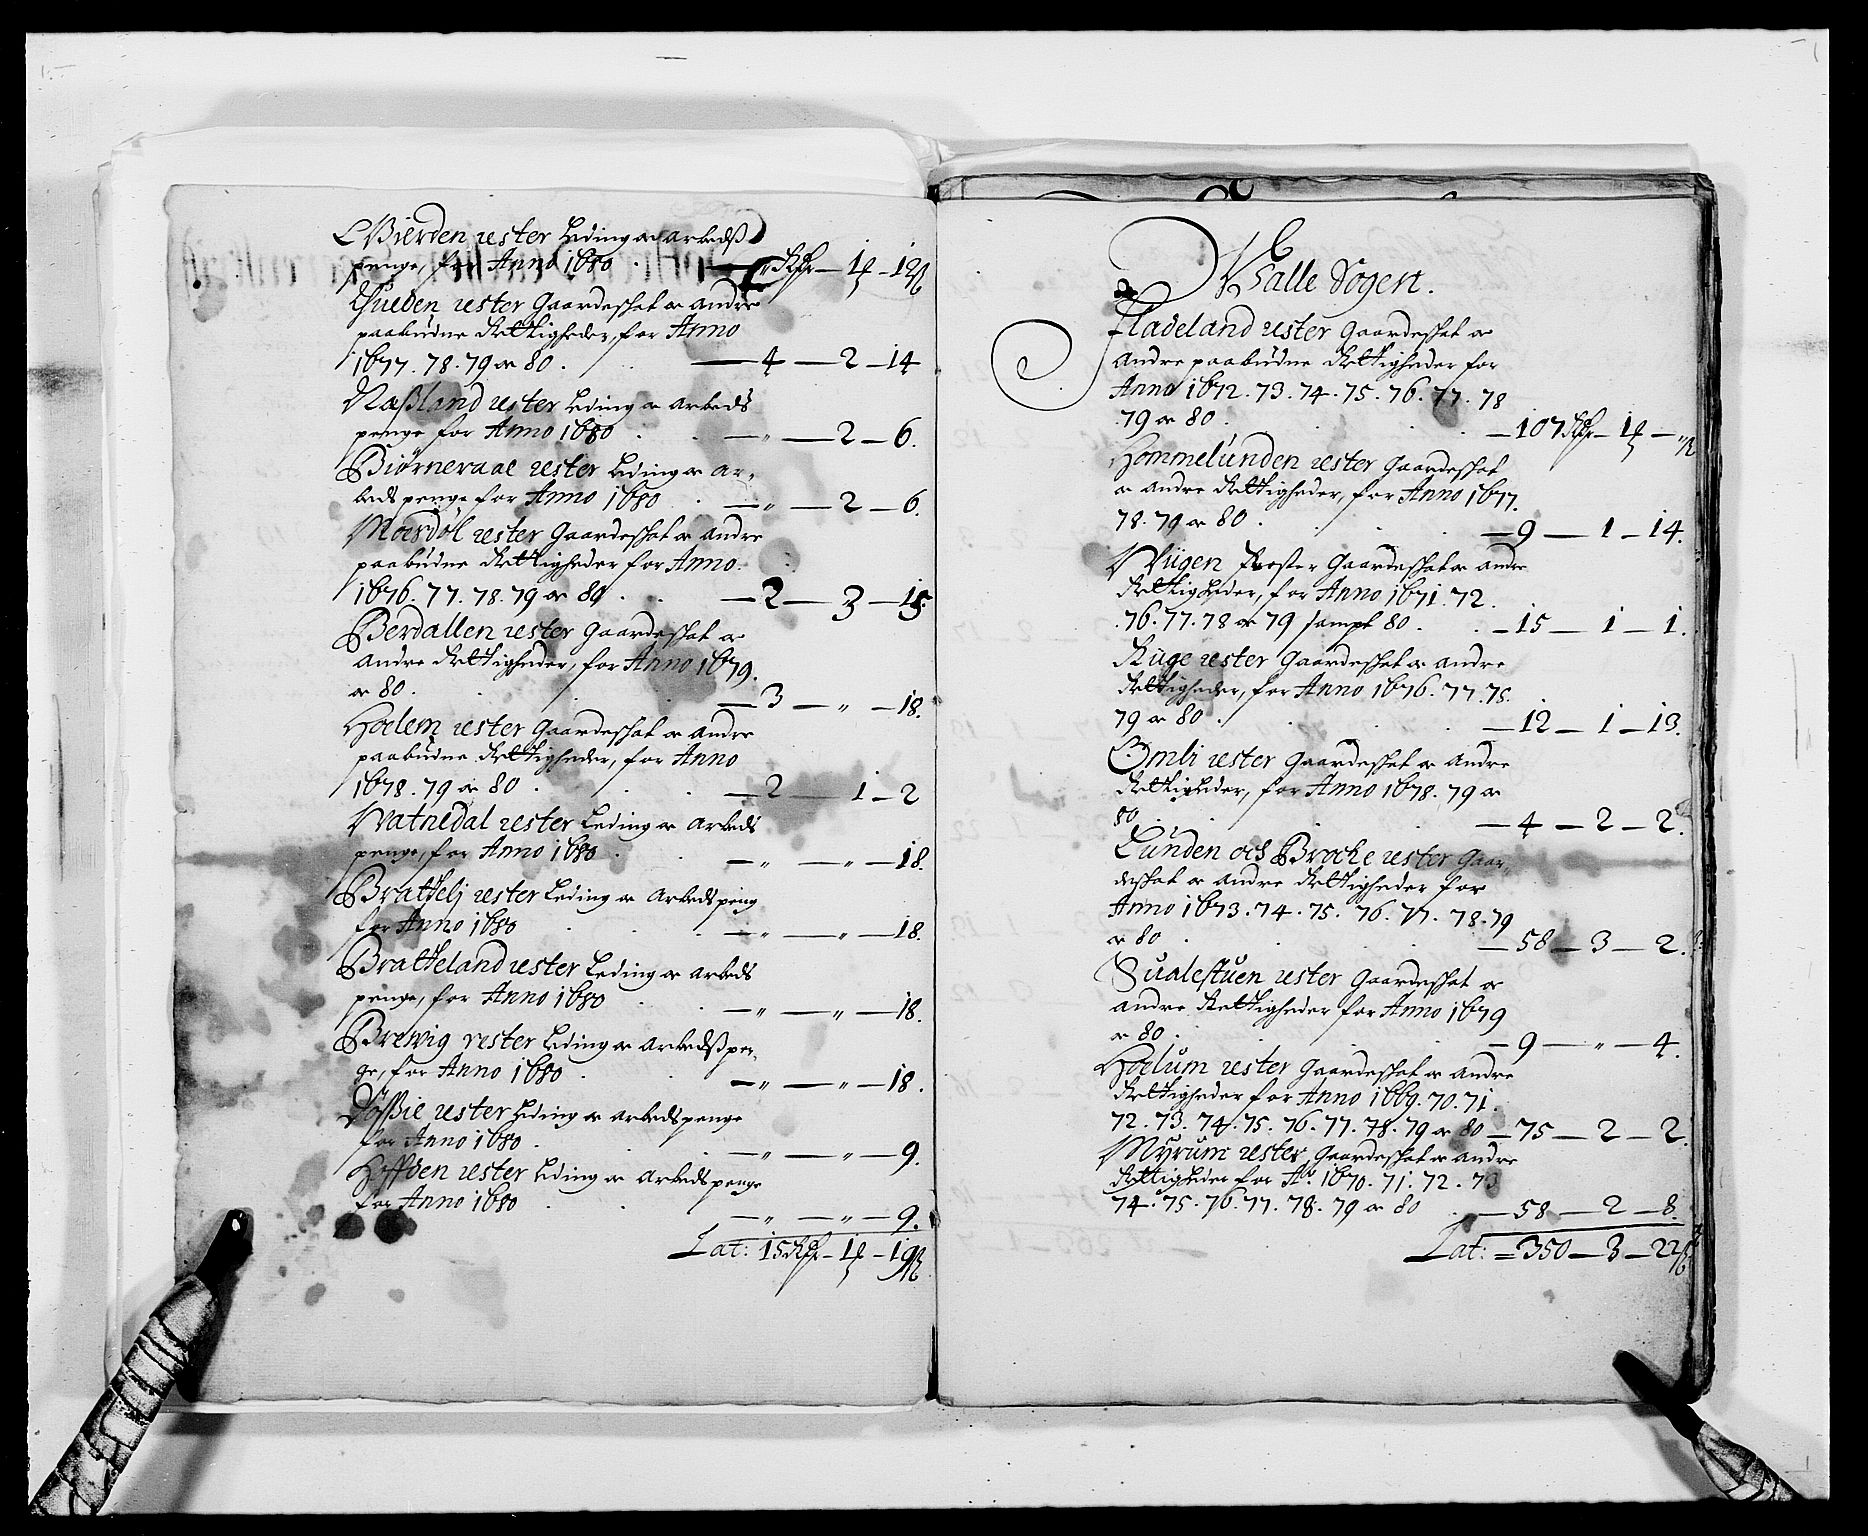 Bierden rester Leding oc arbeds
penge, for Anno 1680 . — " Rdr — 1 ƶ — 12 ß
Gueden rester Gaardeskat oc andre
paabudne Rettigheder, for Anno
1677. 78. 79 oc 80 . — 4 — 2 — 14
Naßland rester Leding oc Arbeds
penge for Anno 1680 . — " — 2 — 6.
Biørneraae rester Leding oc Ar-
beds penge for Anno 1680 . — " — 2 — 6.
Mosdøl rester Gaardeskat oc andre
paabudne Rettigheder for Anno
1676. 77. 78. 79 oc 80 . — 2 — 3 — 15
Berdallen rester Gaardeskat oc
andre Rettigheder, for Anno 1679.
oc 80. — 3 — " — 18.
Hoelem rester Gaardeskat oc andre
paabudne Rettigheder, for Anno
1678. 79 oc 80 . — 2 — 1 — 2
Vatnedal rester Leding oc Arbeds
penge, for Anno 1680 . — " — " — 18.
Brattelj rester Leding oc Arbeds peng
for Anno 1680 — " — " — 18.
Bratteland rester Leding oc Arbeds
penge, for Anno 1680 . — " — " — 18.
Brewig rester Leding oc Arbedß pen-
ge, for Anno 1680 . — " — " — 18.
rester Leding oc arbeds penge
for Anno 1680 . — " — " — 9.
Hoffden rester Leding oc Arbeds penge
for Anno 1680 — " — " — 9.
Lat: 15 Rdr — 1 ƶ — 19 ß
Walle Sogen.
Fladeland rester Gaardeskat oc
andre paabudne Rettigheder for
Anno 1672. 73. 74. 75. 76. 77. 78
. 79 oc 80 . — 107 Rdr — 1 ƶ — " ß
Hommelunden rester Gaardeskat
oc andre Rettigheder, for Anno 1677.
78. 79 oc 80 . — 9 — 1 — 14.
Viigen rester Gaardeskat oc andre
Rettigheder, for Anno 1671. 72.
. 76. 77. 78 oc 79 sampt 80 . — 15 — 1 — 1.
Ruge rester Gaardeskat oc andre
Rettigheder, for Anno 1676. 77. 78.
79 oc 80 . — 12 — 1 — 13.
Omli rester Gaardeskat oc andre
Rettigheder, for Anno 1678. 79 oc
80 . — 4 — 2 — 2.
Lunden och Brocke rester Gaar-
deskat oc andre Rettigheder for
Anno 1673. 74. 75. 76. 77. 78. 79
oc 80 . — 58 — 3 — 2.
Sualestuen rester Gaardeskat oc
andre Rettigheder for Anno 1679
oc 80 . — 9 — " — 4.
Hoelum rester Gaardeskat oc andre
Rettigheder for Anno 1669. 70. 71.
72. 73. 74. 75. 76. 77. 78. 79 oc 80 — 75 — 2 — 2.
Myrum rester Gaardeskat oc andre
Rettigheder for Ao 1670. 71. 72. 73
74. 75. 76. 77. 78. 79 oc 80 . — 58 — 2 — 8.
Lat: = 350 — 3 — 22 ß